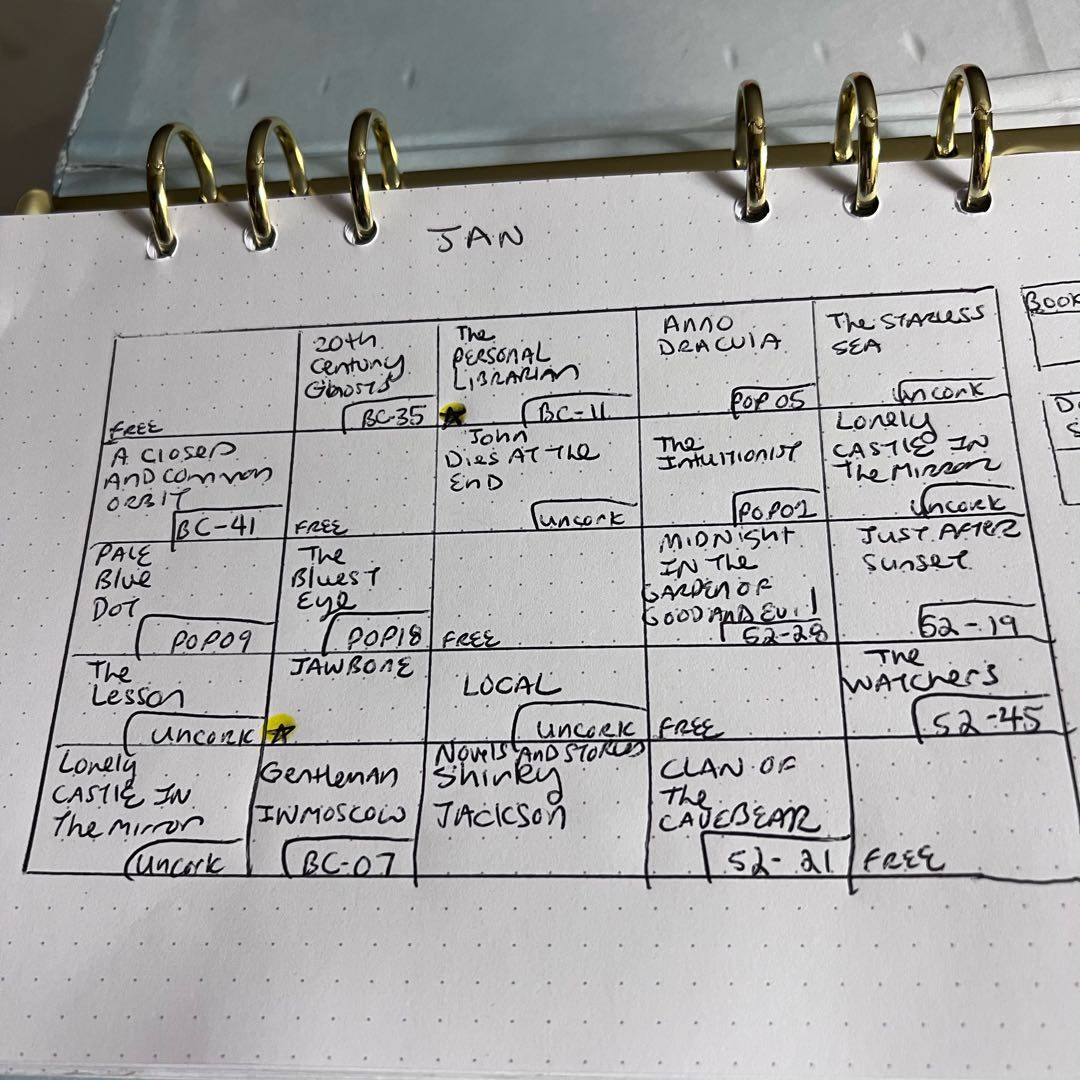 JAN
FREE
20th
Century
Ghosts
BC-35
The
PERSONAL
LIBRARIAN
BC-11
ANNO
DRACULA
POP 05
The STARLESS
SEA
uncork
BOOK
A CLOSED
AND COMMON
ORBIT
BC-41
FREE
John
Dies AT The
END
uncork
The
Intuitionist
LONELY
CASTLE IN
The MIRROR
uncork
PALE
Blue
DOT
POP09
The
Bluest
Eye
POP18
FREE
MIDNight
IN The
GARDEN OF
GOOD AND Evil
52-28
JUST AFTER
Sunset
52-19
The
Lesson
uncork
JAWBONE
LOCAL
uncork
FREE
The
WATCHERS
52-45
Lonely
CASTLE IN
The Mirror
uncork
Gentleman
IN MOSCOW
BC-07
Novels AND STORIES
Shirley
JACKSON
CLAN OF
The
CAVEBEAR
52-21
FREE